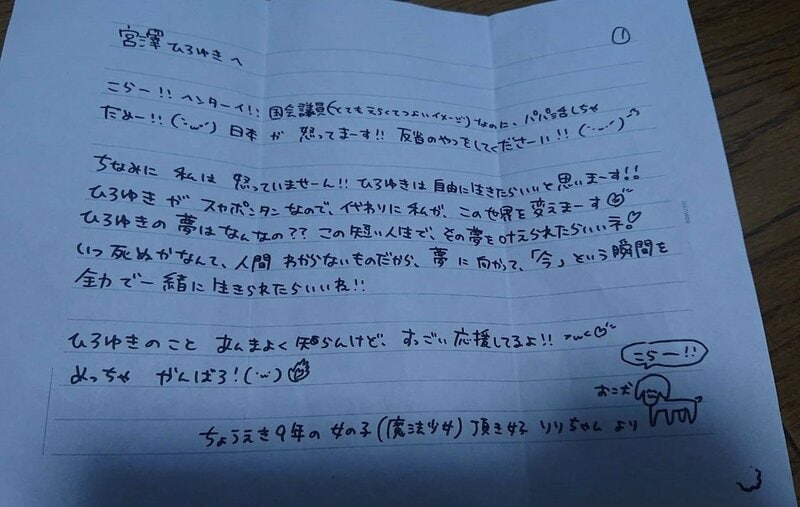 ①
宮澤ひろゆきへ
こらー!! ヘンターイ!! 国会議員(とてもえらくてつよいイメージ)なのに、パパ活しちゃ
だめー!! (・ω・´) 日本が 怒ってまーす!! 反省のやつをしてくださーい!! (・ω・´)
ちなみに 私は 怒っていませーん!! ひろゆきは 自由に生きたらいいと思いまーす!!
ひろゆきが スカポンタンなので、代わりに私が、この世界を変えまーす
ひろゆきの 夢はなんなの?? この短い人生で、その夢を叶えられたらいいネ♡
いつ死ぬかなんて、人間 わからないものだから、夢に向かって、「今」という瞬間を
全力で一緒に生きられたらいいね!!
ひろゆきのこと あんまよく知らんけど、すっごい応援してるよ!! >ω<
めっちゃ がんばろ! (・ω・)
こらー!!
おこ犬
ちょうえき9年の女の子(魔法少女) 頂き女子 りりちゃん より